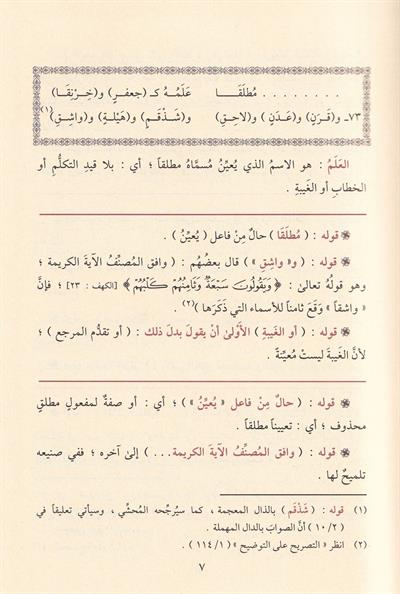 . . . . . . . . مُطلَقَا عَلَمُهُ كـ ( جعفرٍ ) و( خِرْنِقَا )
٧٣ـ و( قَرَنٍ ) و( عَدَنٍ ) و( لاحِقِ ) و( شَذْقَمٍ ) و( هَيْلةٍ ) و( واشِقِ )(١)
العَلَمُ : هو الاسمُ الذي يُعيِّنُ مُسمَّاهُ مطلقاً ؛ أي : بلا قيدِ التكلُّمِ أو
الخطابِ أو الغَيبةِ .
❋ قوله : ( مُطلَقَا ) حالٌ مِنْ فاعل ( يُعيِّنُ ) .
❋ قوله : ( و« واشِقِ » ) قال بعضُهُم : ( وافق المُصنِّفُ الآيةَ الكريمة ؛
وهو قولُهُ تعالىٰ : ﴿ وَيَقُولُونَ سَبْعَةٌ وَثَامِنُهُمْ كَلْبُهُمْ ﴾ [الكهف : ٢٣] ؛ فإنَّ
« واشقاً » وَقَعَ ثامناً للأسماء التي ذَكَرَها )(٢) .
❋ قوله : ( أو الغَيبةِ ) الأَوْلىٰ أنْ يقولَ بدلَ ذلك : ( أو تقدُّمِ المرجع ) ؛
لأنَّ الغَيبةَ ليستْ مُعيِّنةً .
❋ قوله : ( حالٌ مِنْ فاعل « يُعيِّنُ » ) ؛ أي : أو صفةٌ لمفعولٍ مطلقٍ
محذوف ؛ أي : تعييناً مطلقاً .
❋ قوله : ( وافق المُصنِّفُ الآيةَ الكريمة. . . ) إلىٰ آخره ؛ ففي صنيعه
تلميحٌ لها .
(١) قوله : ( شَذْقَم ) بالذال المعجمة ، كما سيُرجِّحه المُحشِّي ، وسيأتي تعليقاً في
( ١٠/٢ ) أنَّ الصوابَ بالدال المهملة .
(٢) انظر « التصريح على التوضيح » ( ١١٤/١ ) .
٧